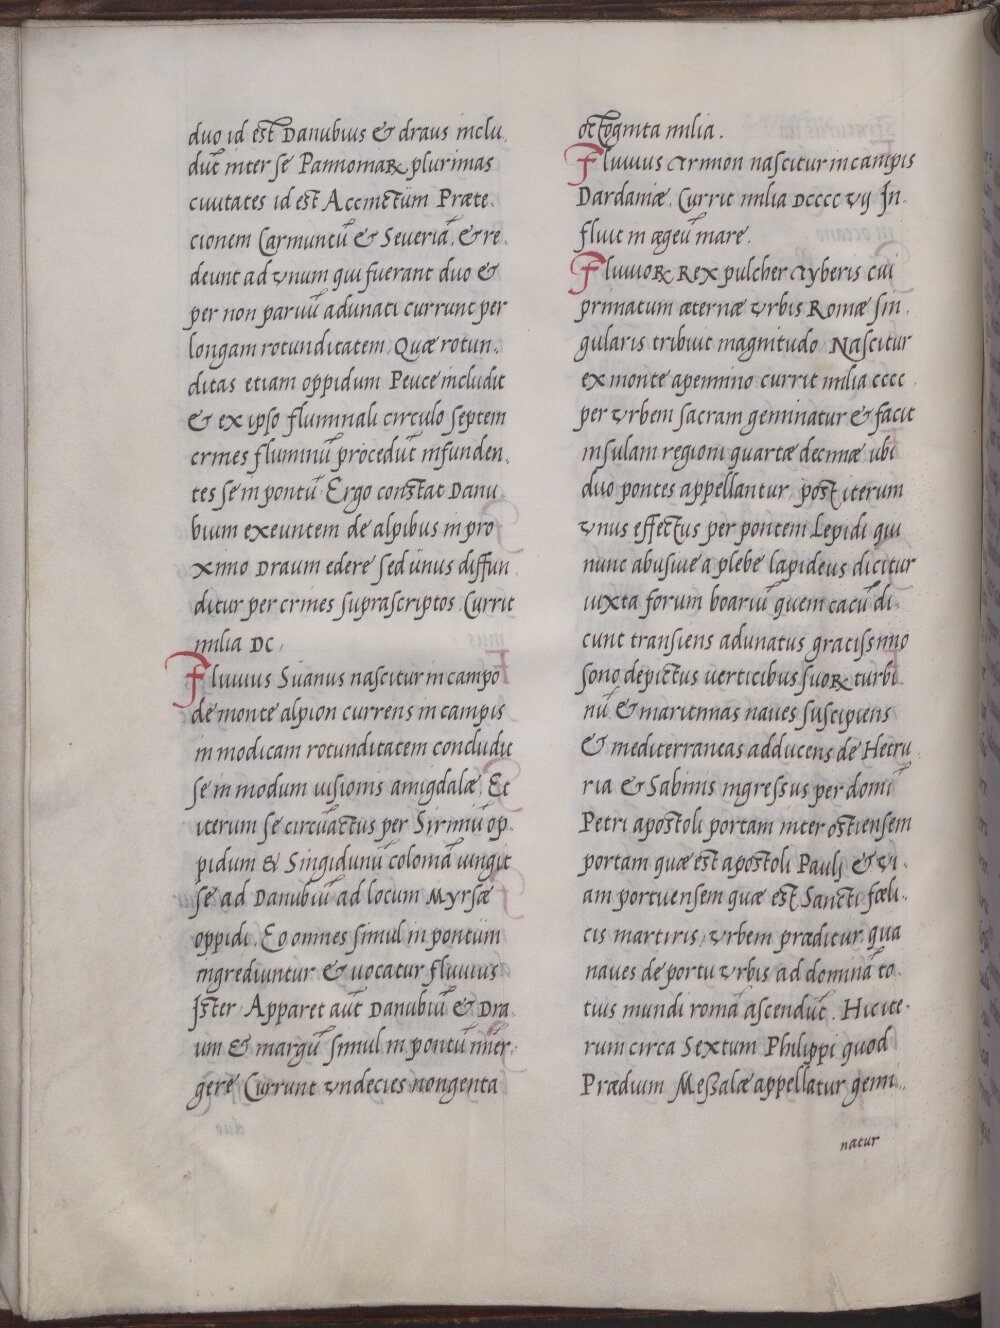 duo id est Danubius & draus inclu,
dūt inter se Pannoniaꝝ plurimas
ciuitates id est Accinctūm Præte,
cionem Carnuntū & Seueriā, & re,
deunt ad vnum qui fuerant duo &
per non paruū adunati currunt per
longam rotunditatem, Quæ rotun,
ditas etiam oppidum Peuce includit
& ex ipso fluminali circulo septem
crines fluminū procedūt infunden,
tes se in pontū Ergo constat Danu,
bium exeuntem de alpibus in pro
ximo Draum edere sed ūnus diffun
ditur per crines suprascriptos. Currit
milia DC,
Fluuius Sūanus nascitur in campo
de monte alpion currens in campis
in modicam rotunditatem concludit
se in modum uisionis amigdalæ, Et
iterum se circūactus per Sirmiū op,
pidum & Singidunū coloniā iungit
se ad Danubiū ad locum Myrsæ
oppidi. Eo omnes simul in pontūm
ingrediuntur & uocatur fluuius
Ister, Apparet aūt Danubiū & Dra,
um & margū simul in pontū mer,
gere Currunt vndecies nongenta
octoginta milia.
Fluuius Armon nascitur in campis
Dardaniæ. Currit milia DCCCC vij In,
fluit in ægeū mare.
Fluuioꝝ Rex pulcher Tyberis cui
primatum æternæ vrbis Romæ sin,
gularis tribuit magnitudo Nascitur
ex monte apennino currit milia CCCC,
per vrbem sacram geminatur & facit
insulam regioni quartæ decimæ ubi
duo pontes appellantur, post iterum
vnus effectus per pontem Lepidi qui
nunc abusiue a plebe lapideus dicitur
iuxta forum boariū quem cacū di,
cunt transiens adunatus gratissimo
sono depictus uerticibus suoꝝ turbi,
nū & maritimas naues suscipiens
& mediterraneas adducens de Hetru,
ria & Sabinis ingressus per domī
Petri apostoli portam inter ostiensem
portam quæ est apostoli Paulj & vi,
am portuensem quæ est Sancti fœli,
cis martiris, vrbem præditur, qua
naues de portu vrbis ad dominā to,
tius mundi romā ascendūt. Hic ite,
rum circa Sextum Philippi quod
Prædium Meßalæ appellatur gemi,
natur